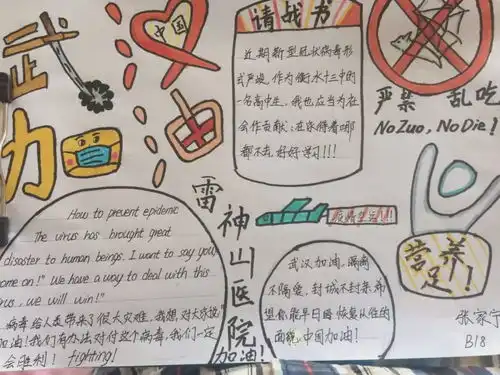 武
力
中国
请战书
近期新型冠状病毒形
式严峻,作为衡水十三中的
一名高中生,我也应当为社
会作贡献:在家待着哪
都不去,好好学习!!!
严禁 乱吃
No Zuo, No Die!
How to prevent epidemic
The virus has brought great
disaster to human beings. I want to say you
ome on!" We have a way to deal with this
rus, we will win!"
病毒给人类带来了很大灾难,我想对大家说
加油!我们有办法对付这个病毒,我们一定
会胜利! fighting!
雷
神
山
医
院
加油!
武汉加油,隔离
不隔爱,封城不封
望你最早日
面貌,中国加油!
营养
足!!
张家宁
B18